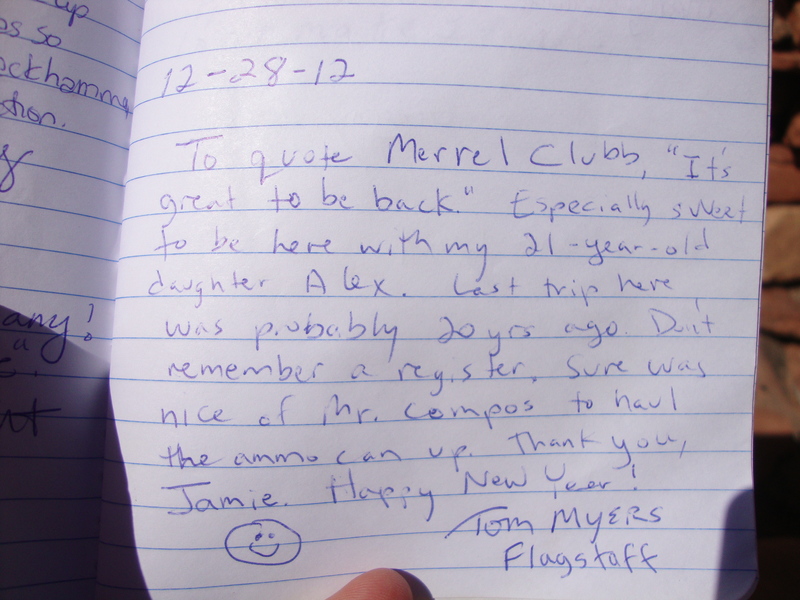 up
so
ockhamma
tion.
any!
a
12-28-12
To quote Merrel Clubb, "It's
great to be back." Especially sweet
to be here with my 21-year-old
daughter Alex. Last trip here
was probably 20 yrs ago. Don't
remember a register. Sure was
nice of Mr. Compos to haul
the ammo can up. Thank you,
Jamie. Happy New Year!
Tom MYERS
Flagstaff